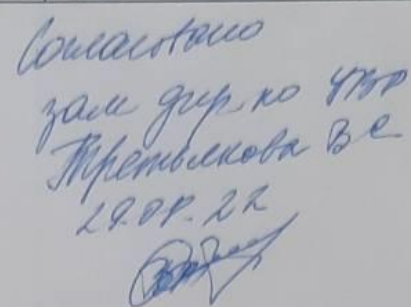 Согласовано
зам дир. по УВР
Третьякова ВС
29.08.22